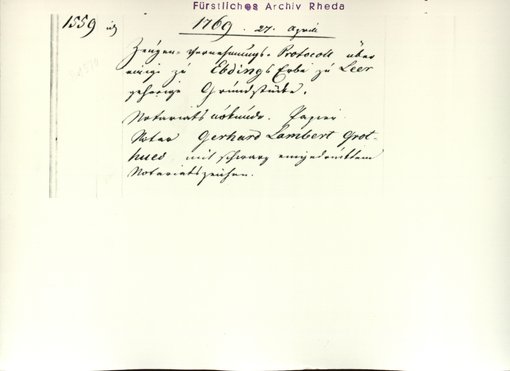 Fürstliches Archiv Rheda
1559
1769. 27. April
Zeugen-Vernehmungs-Protocoll über
einige zu Ebdings Erbe zu Leer
gehörige Grundstücke.
Notariatsurkunde. Papier
Notar Gerhard Lambert Grot-
hues mit schwarz eingedrücktem
Notariatszeichen.